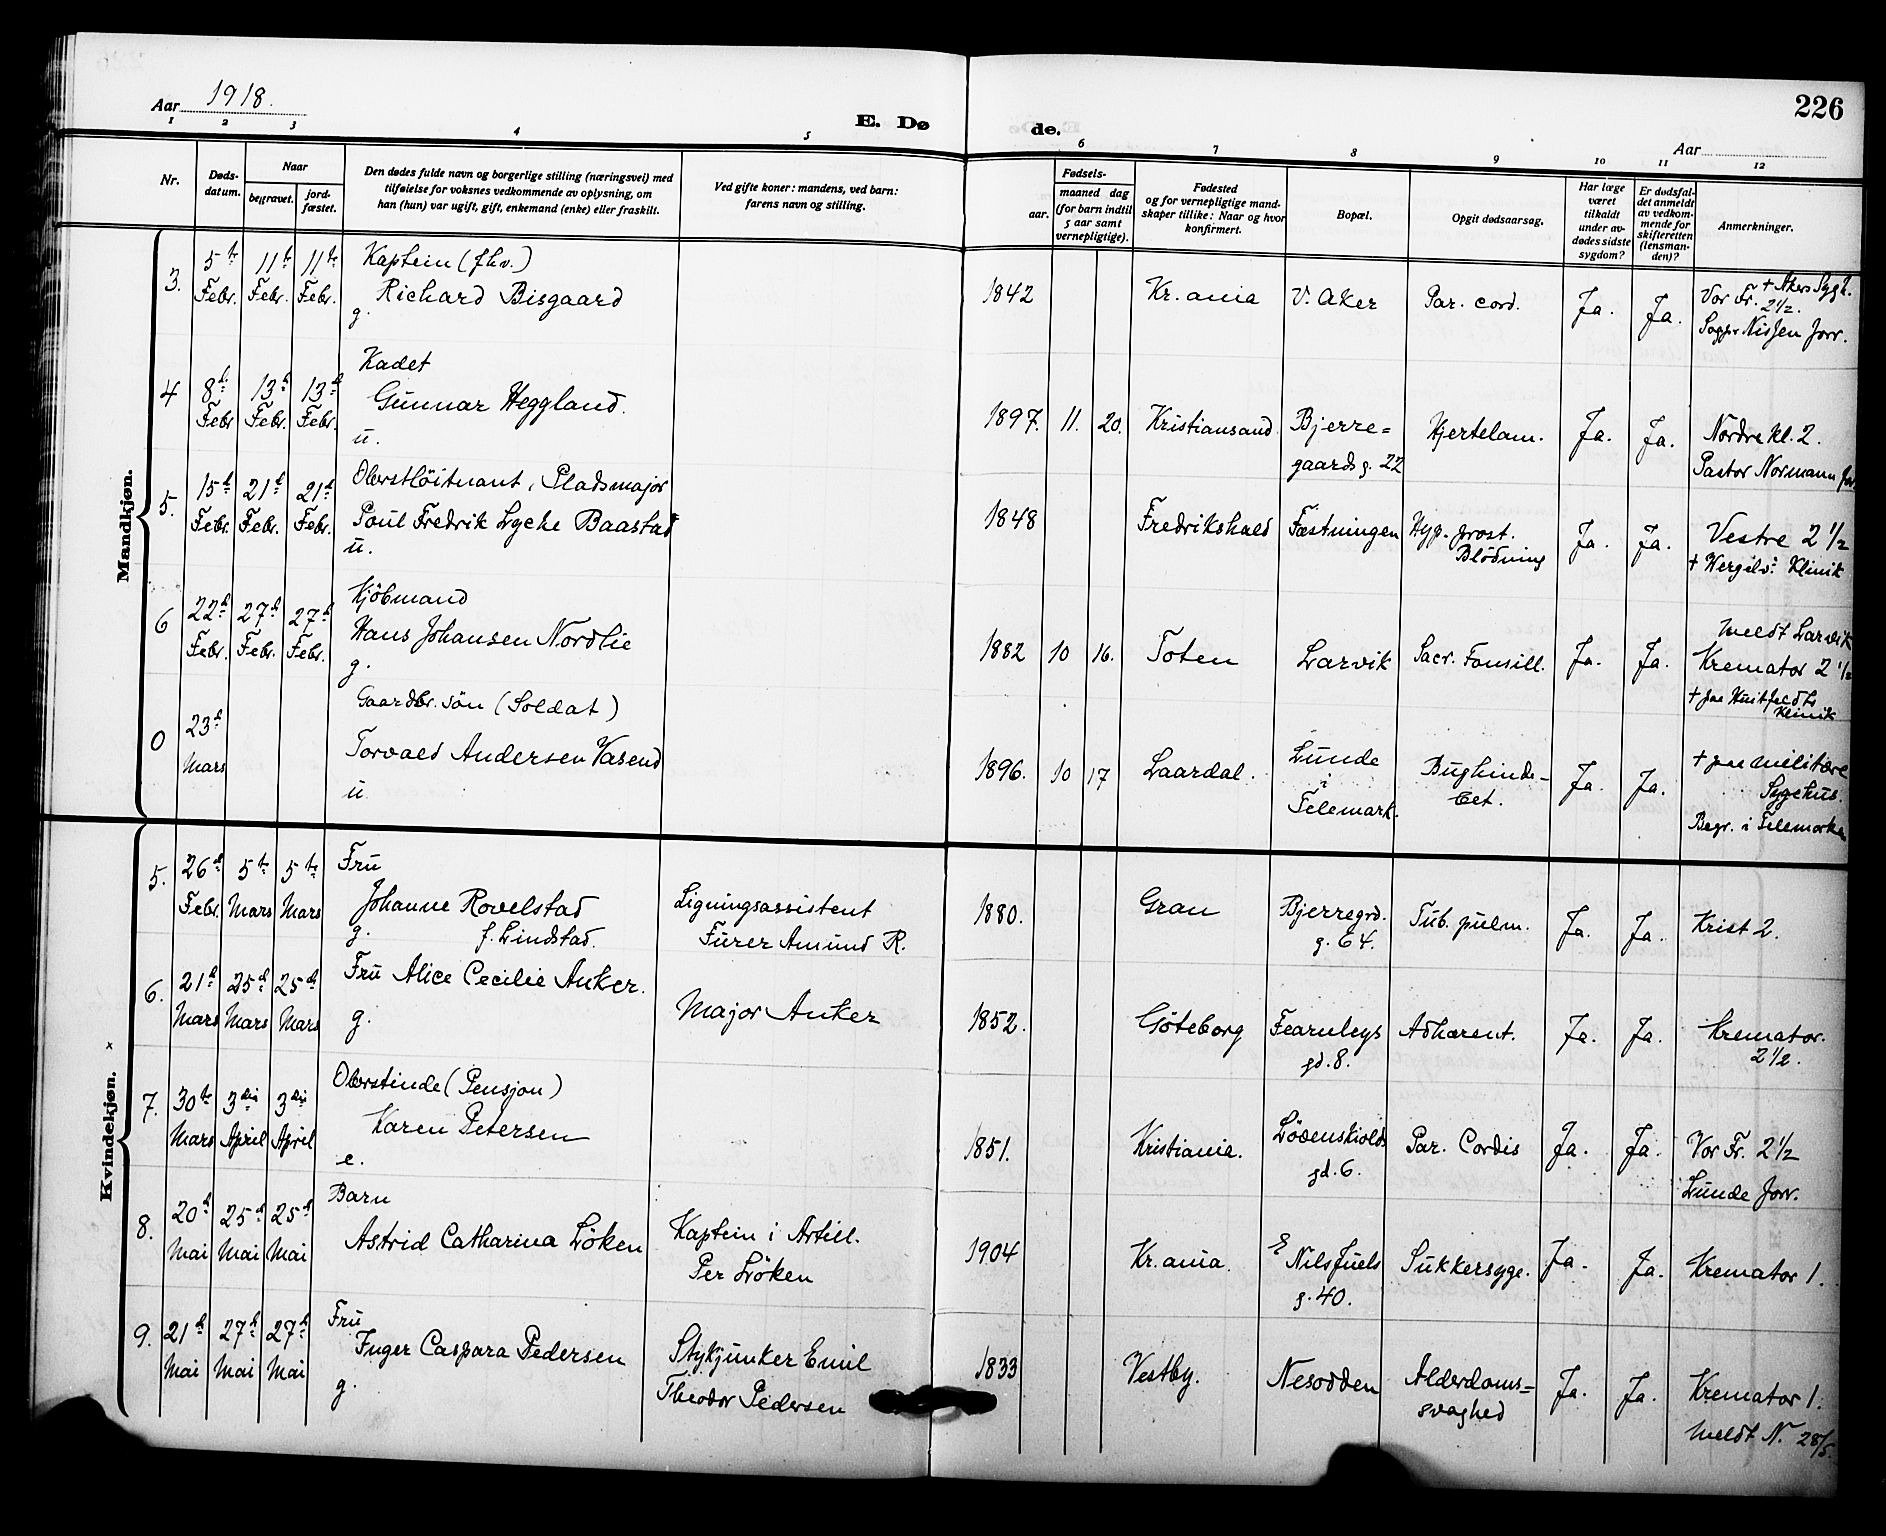 Aar 1918.
E. Dø
de.
226
Aar
1 2 3 4 5 6 7 8 9 10 11 12
Nr.
Døds-
datum.
Naar
begravet.
jord-
fæstet.
Den dødes fulde navn og borgerlige stilling (næringsvei) med
tilføielse for voksnes vedkommende av oplysning, om
han (hun) var ugift, gift, enkemand (enke) eller fraskilt.
Ved gifte koner: mandens, ved barn:
farens navn og stilling.
Fødsels-
aar.
maaned dag
(for barn indtil
5 aar samt
vernepligtige).
Fødested
og for vernepligtige mand-
skaper tillike: Naar og hvor
konfirmert.
Bopæl.
Opgit dødsaarsag.
Har læge
været
tilkaldt
under av-
dødes sidste
sygdom?
Er dødsfal-
det anmeldt
av vedkom-
mende for
skifteretten
(lensman-
den)?
Anmerkninger.
Mandkjøn.
3. 5te Febr. 11te Febr. 11te Febr.
Kaptein (fhv.)
Richard Bisgaard
g.
1842 Kr.ania V. Aker Par. cord. Ja. Ja.
+ Akers Sygh.
Vor Fr. 2½.
Sogpr Nissen forr.
4 8d. Febr 13d Febr. 13d Febr.
Kadet
Gunnar Heggland.
u.
1897. 11. 20. Kristiansand Bjerre=
gaards g. 22
Hjertelam. Ja. Ja.
Nordre kl. 2.
Pastor Normann forr.
5. 15d Febr. 21d Febr. 21d Febr.
Oberstløitnant, Pladsmajor
Poul Fredrik Lyche Baastad
u.
1848 Fredrikshald Fæstningen
Hyp. prost.
Blödning
Ja. Ja.
Vestre 2½
+ Hergelvs Klinik
6 22d Febr. 27d Febr. 27d Febr.
Kjöbmand
Hans Johansen Nordlie
g.
1882 10 16. Toten Larvik Sacr. Tonsill. Ja. Ja.
meldt Larvik
Kremator 2½
+ paa Huitfeldts
Klinik
0 23d Mars
Gaardbr. sön (Soldat)
Torvald Andersen Vasend
u.
1896. 10 17 Laardal.
Lunde
i
Telemark.
Bughinde-
bet.
Ja. Ja.
+ paa militære
Sygehus.
Begr. i Telemarken
Kvindekjøn.
x
5. 26d Febr. 5te Mars 5te Mars
Fru
Johanne Rovelstad
g. f. Lindstad.
Ligningsassistent
Furer Amund R.
1880. Gran
Bjerregrd.
g. 64.
Tub. pulm. Ja. Ja. Krist 2.
6. 21d Mars 25d Mars 25de Mars
Fru Alice Cecilie Anker.
g.
Major Anker
1852. Göteborg
Fearnleys
gd. 8.
Adhærent. Ja. Ja.
Kremator.
2½.
7. 30te Mars 3die April 3die April
Oberstinde (Pensjon)
Karen Petersen
e.
1851. Kristiania.
Lövenskiolds
gd. 6.
Par. Cordis Ja. Ja.
Vor Fr. 2½
Lunde forr.
8. 20d Mai 25d Mai 25d Mai
Barn
Astrid Catharina Löken
Kaptein i Artill.
Per Löken
1904 Kr.ania.
Nils Juels
g. 40.
Sukkersyge. Ja. Ja. Kremator 1.
9. 21d Mai 27d Mai 27d Mai
Fru
Inger Caspara Pedersen
g.
Stykjunker Emil
Theodor Pedersen
1833 Vestby. Nesodden
Alderdoms=
svaghed
Ja. Ja.
Kremator 1.
Meldt N. 28/5.